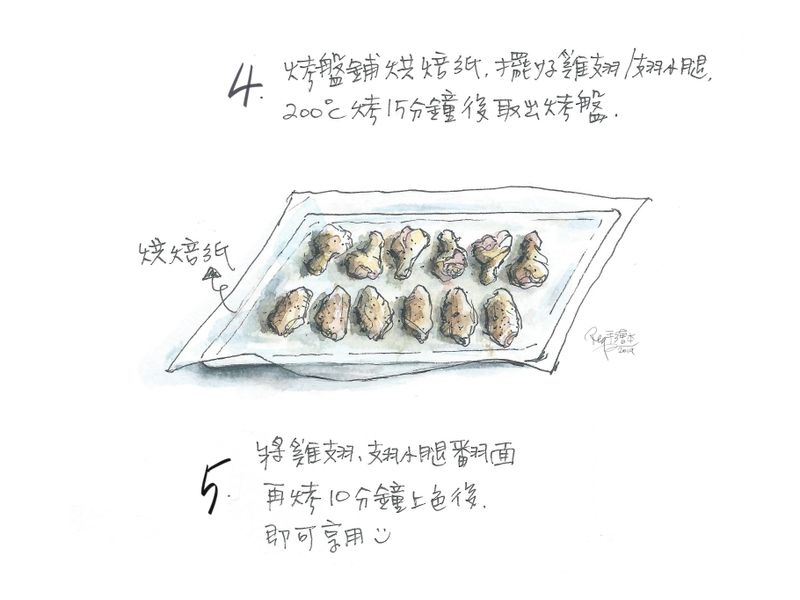 4. 烤盤鋪烘焙紙,擺好雞翅/翅小腿,
200°C 烤15分鐘後取出烤盤.
烘焙紙
Req手繪本
2012
5. 將雞翅、翅小腿翻面
再烤10分鐘上色後.
即可享用